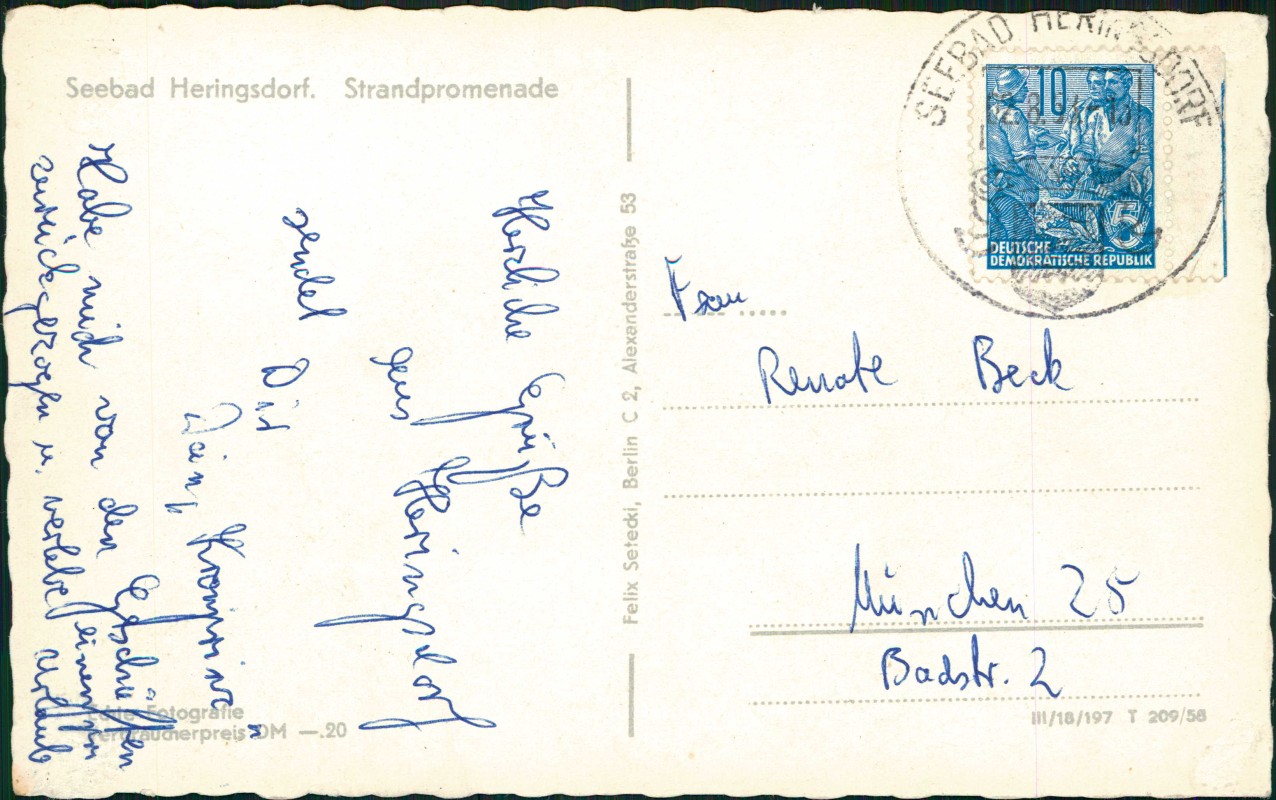 Seebad Heringsdorf. Strandpromenade
Herzliche Grüße
aus Heringsdorf
sendet Dir
Dein
Habe mich von den Geschäften
zurückgezogen u. verlebe einen Urlaub
Echte Fotografie
Verbraucherpreis DM —.20
Felix Setecki, Berlin C 2, Alexanderstraße 53
SEEBAD HERINGSDORF
10
5
DEUTSCHE
DEMOKRATISCHE REPUBLIK
Frau
Renate Beck
München 25
Badstr. 2
III/18/197 T 209/56